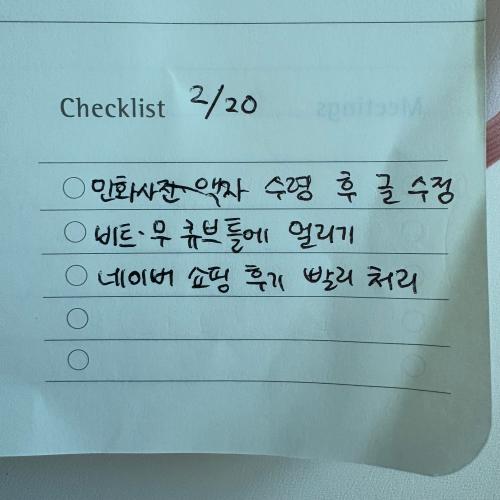 Checklist 2/20
인화사진 액자 수령 후 글 수정
비트·무 큐브틀에 얼리기
네이버 쇼핑 후기 빨리 처리
Meetings